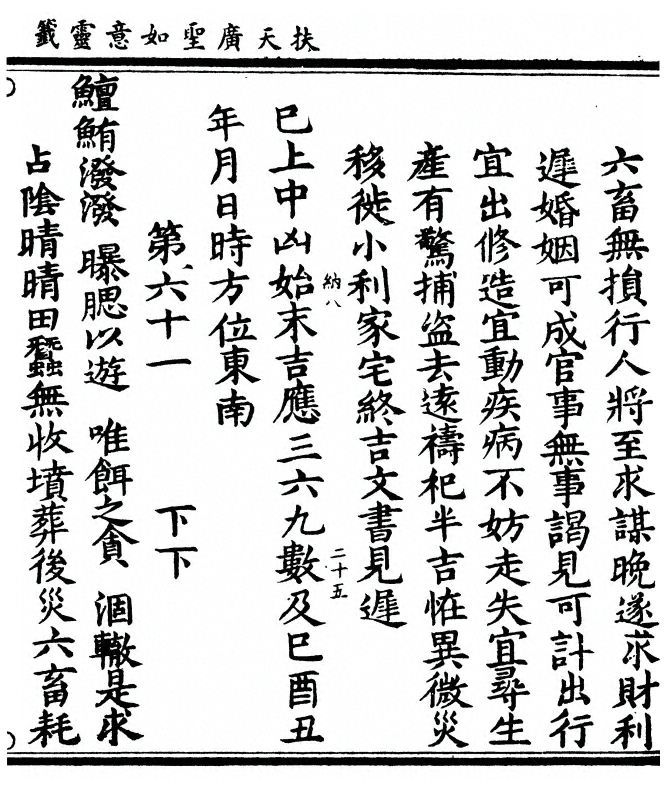 扶天廣聖如意靈籤
六畜無損行人將至求謀晚遂求財利
遲婚姻可成官事無事謁見可計出行
宜出修造宜動疾病不妨走失宜尋生
產有驚捕盜去遠禱祀半吉怪異微災
移徙小利家宅終吉文書見遲
納八
二十五
巳上中凶始末吉應三六九數及巳酉丑
年月日時方位東南
第六十一 下下
鱣鮪潑潑 曝腮以遊 唯餌之貪 涸轍是求
占陰晴晴田蠶無收墳葬後災六畜耗